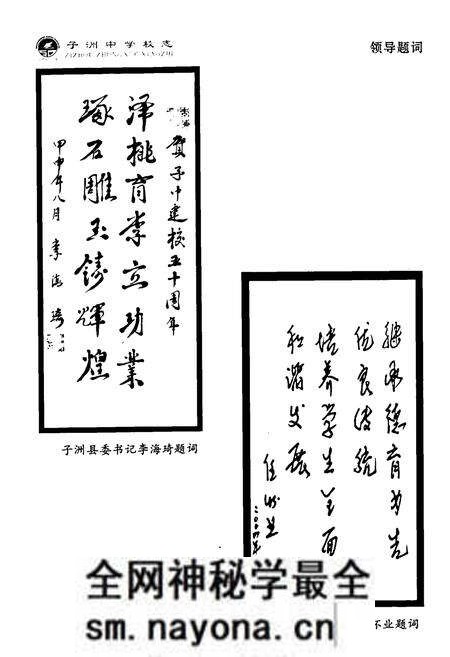 子洲中学校志
ZIZHOU ZHONGXUE XIAOZHI
领导题词
贺子中建校五十周年
泽桃育李立功业
琢石雕玉铸辉煌
甲申年八月 李海琦
子洲县委书记李海琦题词
继承德育为先
优良传统
培养学生全面
和谐发展
二〇〇四年
全网神秘学最全
sm.nayona.cn
业题词